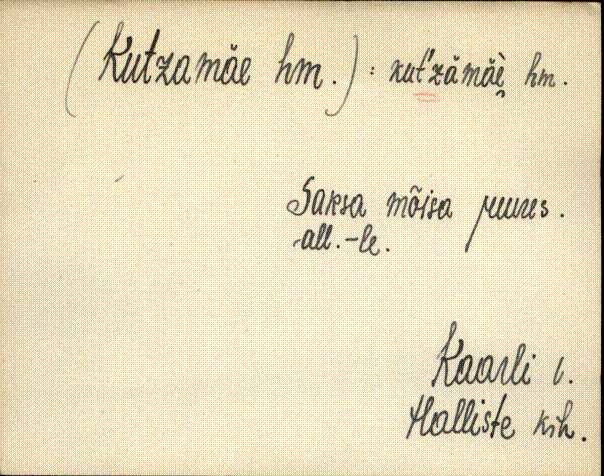 (Kutzamäe hm.) : kut'zämäè̮ hm.
Saksa mõisa juures.
all. -le.
Kaarli v.
Halliste khk.